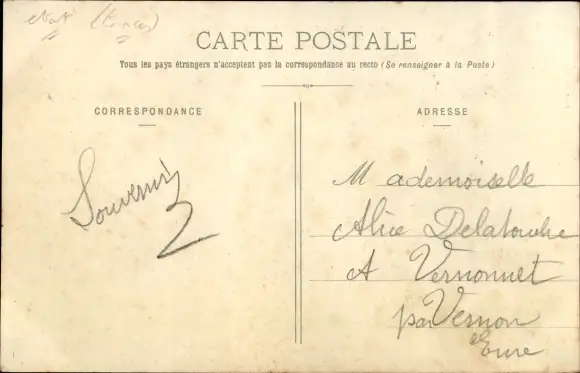 CARTE POSTALE
Tous les pays étrangers n'acceptent pas la correspondance au recto (Se renseigner à la Poste)
CORRESPONDANCE
ADRESSE
Souvenir
Mademoiselle
Alice Delatouche
A Vernonnet
par Vernon
Eure